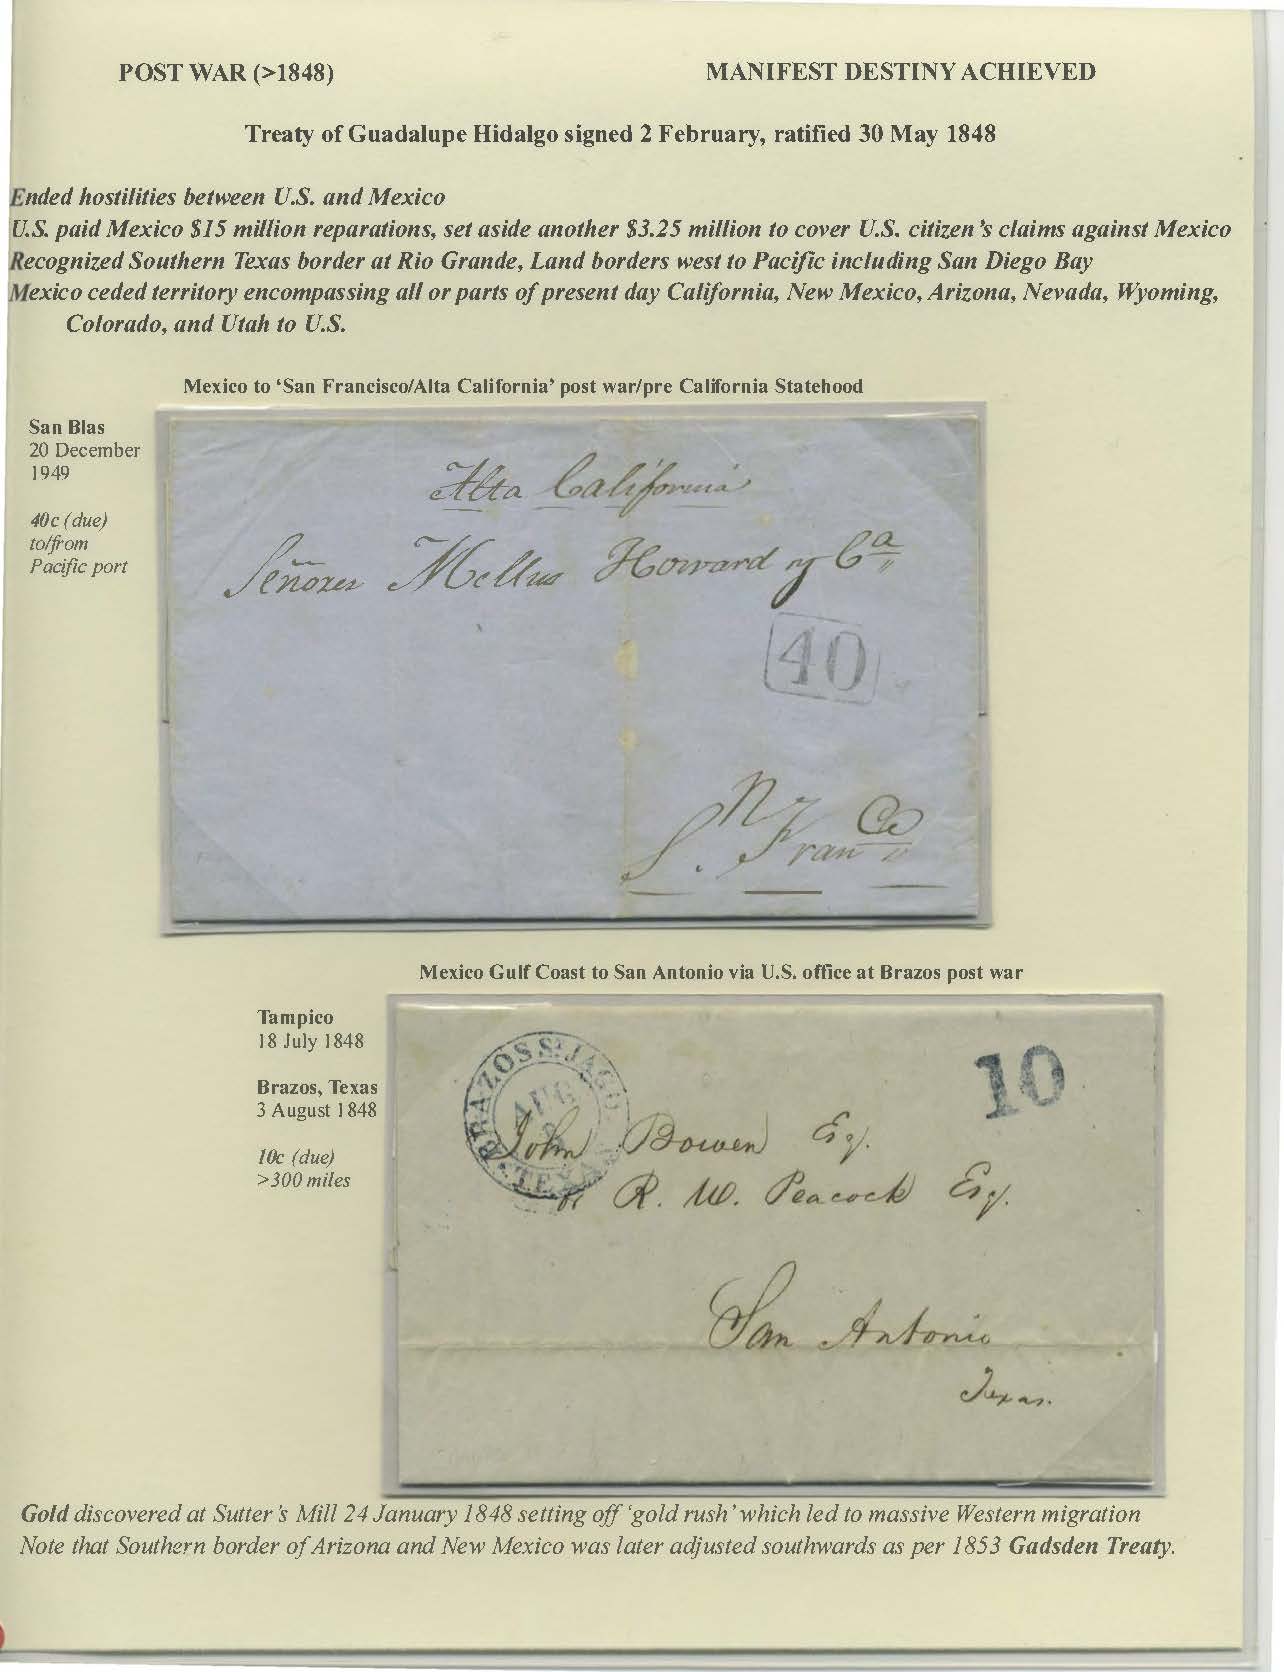 POST WAR (>1848)
MANIFEST DESTINY ACHIEVED
Treaty of Guadalupe Hidalgo signed 2 February, ratified 30 May 1848
Ended hostilities between U.S. and Mexico
U.S. paid Mexico $15 million reparations, set aside another $3.25 million to cover U.S. citizen's claims against Mexico
Recognized Southern Texas border at Rio Grande, Land borders west to Pacific including San Diego Bay
Mexico ceded territory encompassing all or parts of present day California, New Mexico, Arizona, Nevada, Wyoming,
Colorado, and Utah to U.S.
Mexico to 'San Francisco/Alta California' post war/pre California Statehood
San Blas
20 December
1949
40c (due)
to/from
Pacific port
Alta California
Señores Mellus Howard y Ca
40
S. Franco
Mexico Gulf Coast to San Antonio via U.S. office at Brazos post war
Tampico
18 July 1848
Brazos, Texas
3 August 1848
10c (due)
>300 miles
BRAZOS St JAGO.
AUG
3
TEXAS
10
John Bowen Esq.
or R. W. Peacock Esq.
San Antonio
Texas.
Gold discovered at Sutter's Mill 24 January 1848 setting off 'gold rush' which led to massive Western migration
Note that Southern border of Arizona and New Mexico was later adjusted southwards as per 1853 Gadsden Treaty.